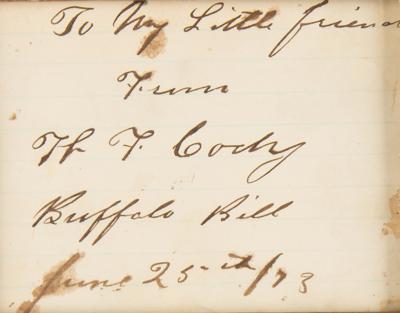 To My Little friend
From
W. F. Cody
Buffalo Bill
June 25th/73